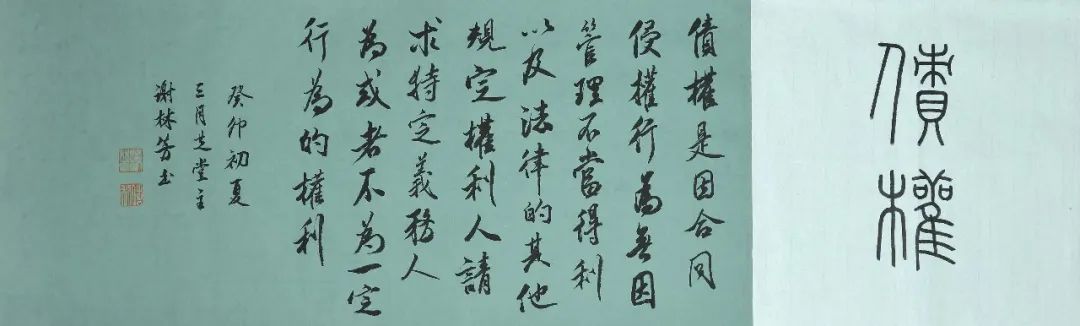 債權
債權是因合同
侵權行為無因
管理不當得利
以及法律的其他
規定權利人請
求特定義務人
為或者不為一定
行為的權利
癸卯初夏
三月芝堂主
謝林芳书